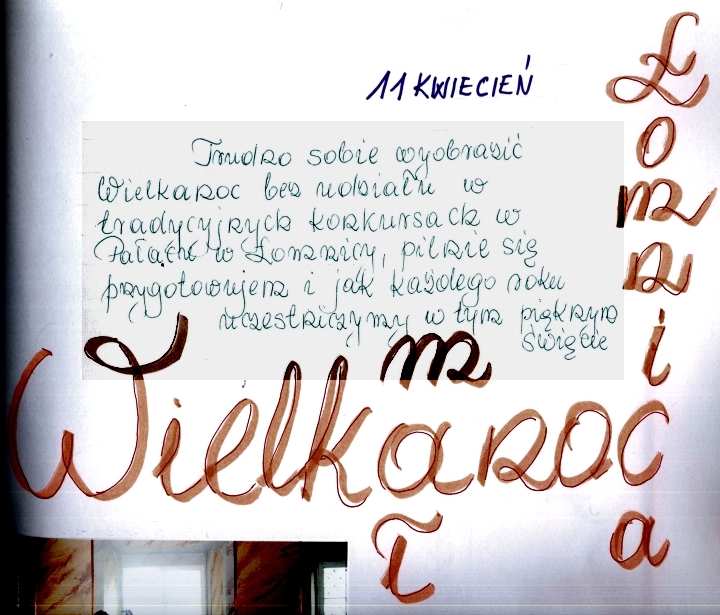 11 KWIECIEŃ
Trudno sobie wyobrazić
Wielkanoc bez udziału w
tradycyjnych konkursach w
Pałacu w Łomnicy, pilnie się
przygotowujemy i jak każdego roku
uczestniczymy w tym pięknym
święcie
Wielkanoc
mał
Łomnica